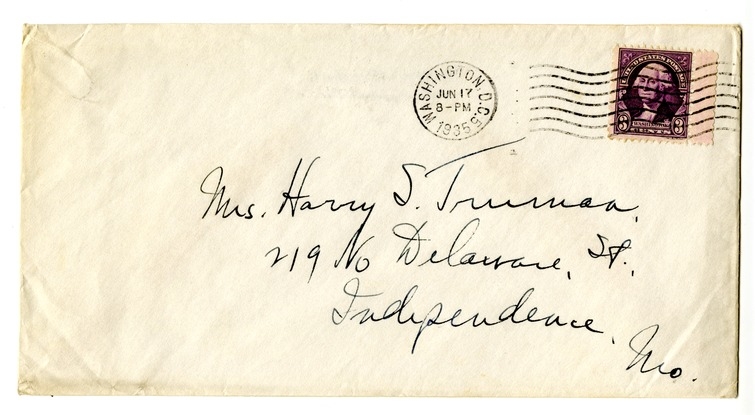 WASHINGTON, D.C.
JUN 17
8-PM
1935
UNITED STATES POSTAGE
3 WASHINGTON 3
Mrs. Harry S. Truman,
219 No Delaware, St.,
Independence,
Mo.